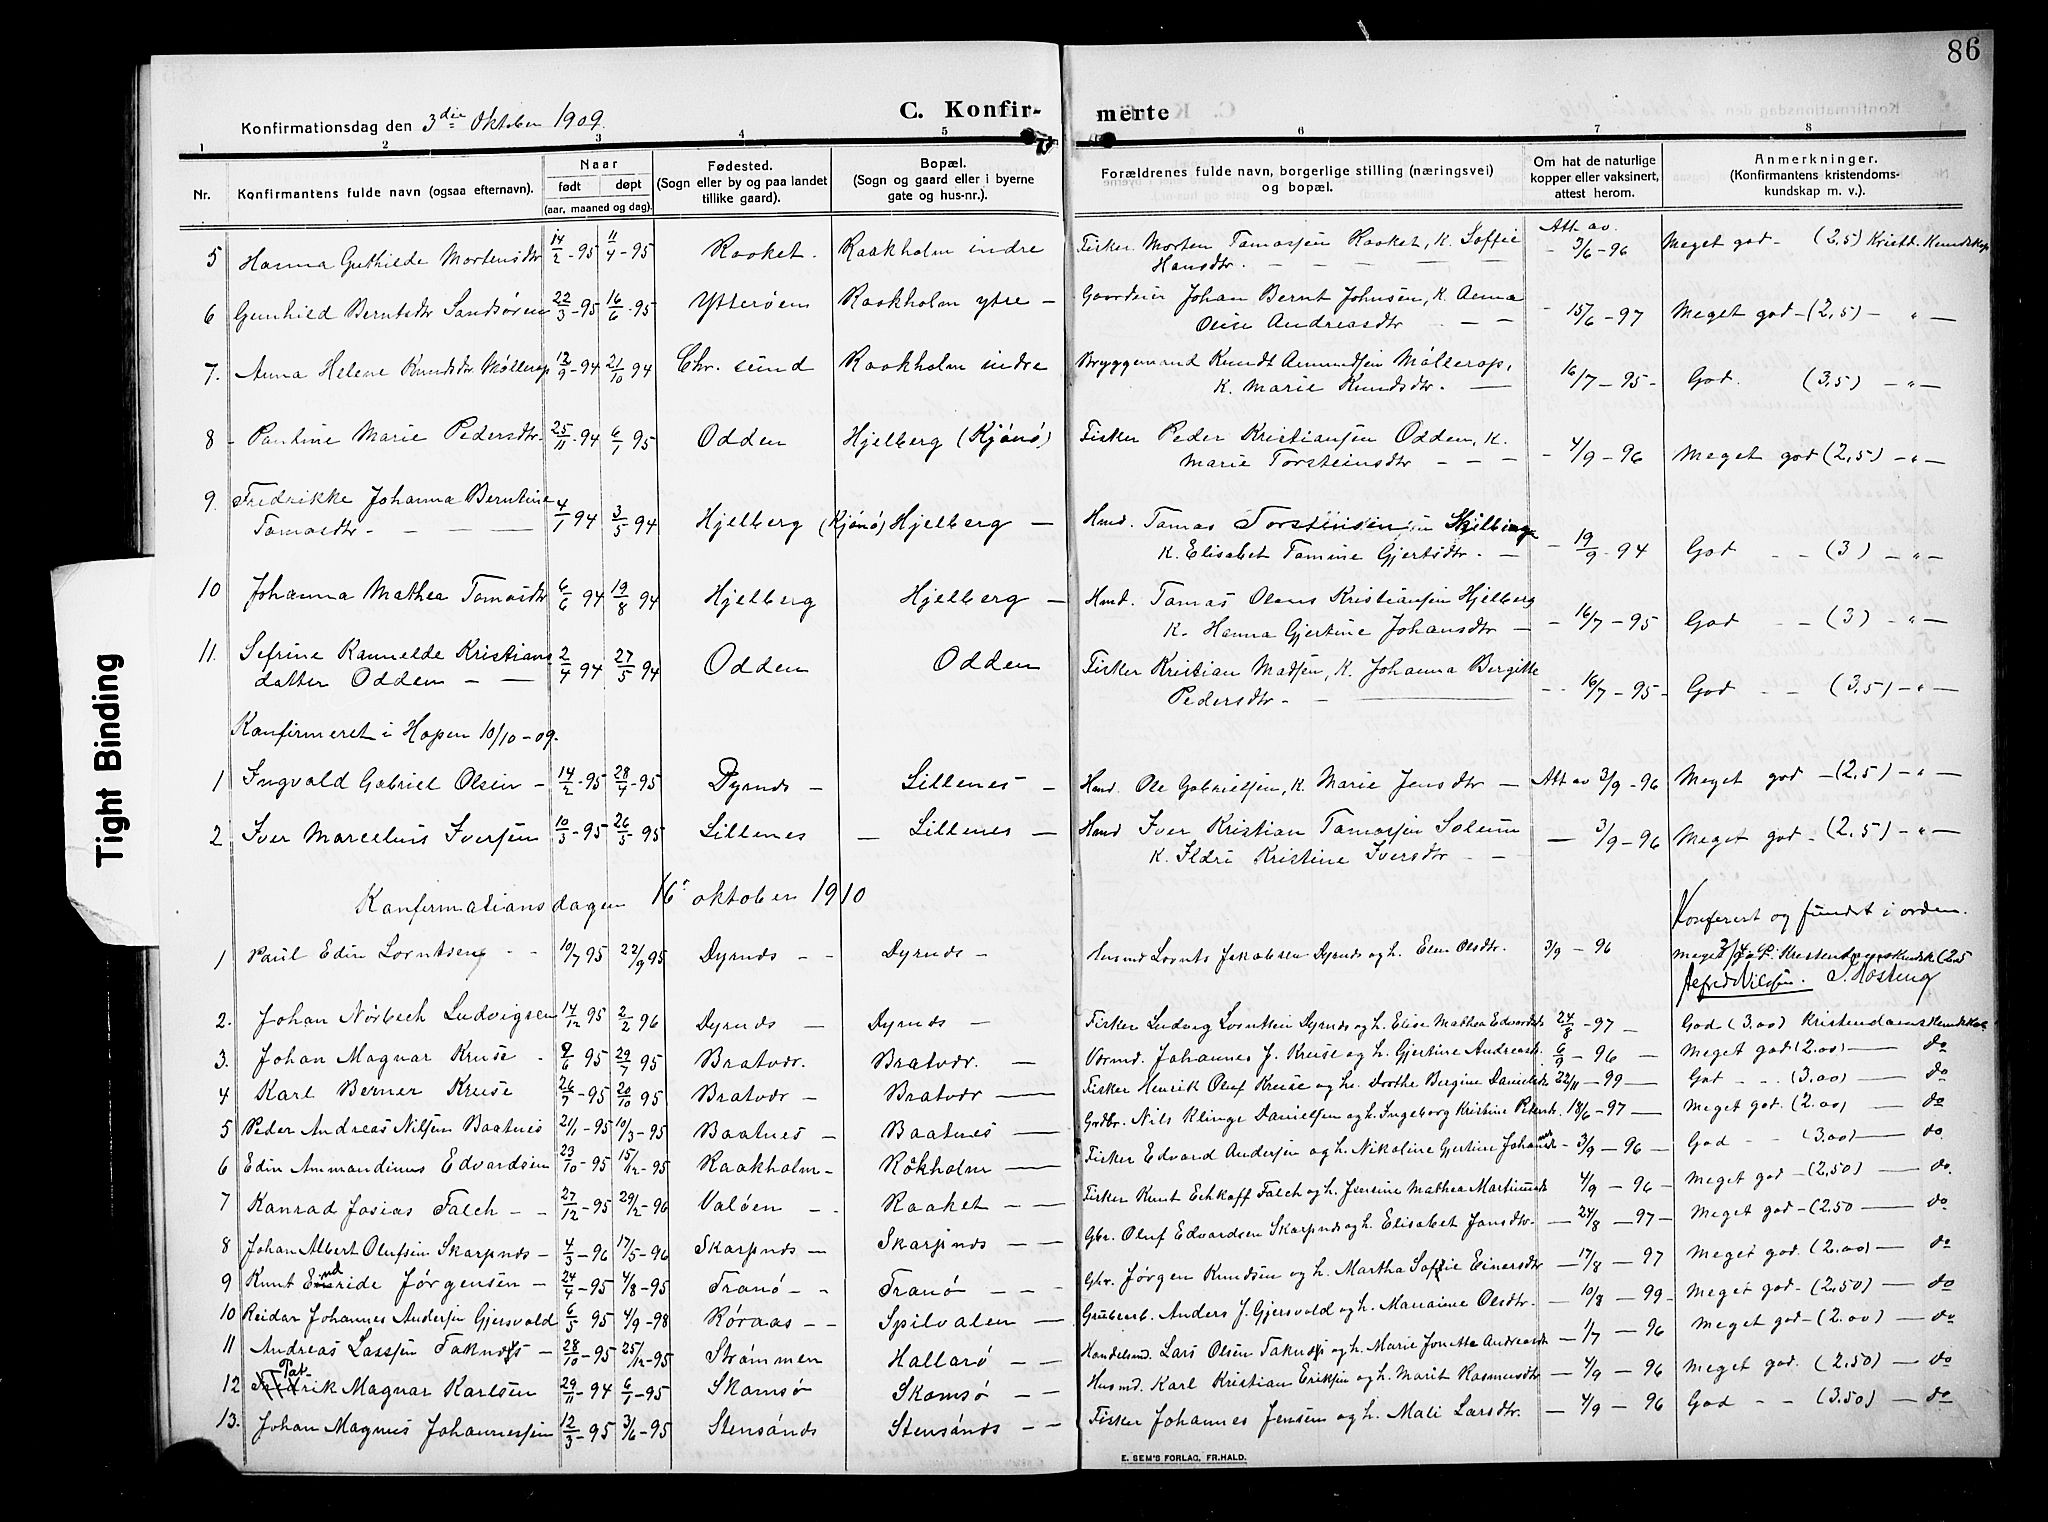 86
Konfirmationsdag den 3die Oktober 1909.
C. Konfirmerte
1 2 3 4 5 6 7 8
Nr.
Konfirmantens fulde navn (ogsaa efternavn).
Naar
født døpt
(aar, maaned og dag).
Fødested.
(Sogn eller by og paa landet
tillike gaard).
Bopæl.
(Sogn og gaard eller i byerne
gate og hus-nr.).
Forældrenes fulde navn, borgerlige stilling (næringsvei)
og bopæl.
Om hat de naturlige
kopper eller vaksinert,
attest herom.
Anmerkninger.
(Konfirmantens kristendoms-
kundskap m. v.).
5 Hanna Guthilde Mortensdtr 14/2-95 11/4-95 Raaket. Raakholm indre Fisker Morten Tamasjen Raaket, K. Soffie Att av. 3/6-96 Meget god - (2,5) Kristd. Kundskap
Hansdtr.
6 Gunhild Berntsdtr Sandsören 22/3-95 16/6-95 Ytterøen Raakholm ytre - Gaardeier Johan Bernt Johnsen, K. Anna - 15/6-97 Meget god - (2,5) - " -
Oline Andreasdtr
7. Anna Helene Knudsdr Møllerop 12/9-94 21/10 94 Chr. sund Raakholm indre Bryggemand Knudt Amundsjen Møllerop, 16/7-95- God. (3,5) - " -
K. Marie Knudsdtr. -
8 - Pauline Marie Pedersdtr. 25/11-94 6/1 95 Odden Hjelberg (Kjønö) Fisker Peder Kristiansjen Odden, K. - 4/9-96 Meget god (2,5) - " -
Marie Torsteinsdtr - - -
9. Fredrikke Johanna Berntine
Tamasdtr - 4/1 94 3/5 94 Hjelberg (Kjönö) Hjelberg - Hmd. Tamas Torstensen
K. Elisabet Tamine Gjertsdtr. - 19/9-94 God - - (3) - " -
10 Johanna Mathea Tomasdtr 6/6 94 19/8 94 Hjelberg Hjelberg - Hmd. Tamas Olaus Kristiansjen Hjelberg
K. Hanna Gjertine Johansdtr - - 16/7-95 God - - (3) - " -
11. Sefrine Rannelde Kristians
datter Odden - - 2/4 94 27/5 94 Odden Odden Fisker Kristian Madsjen, K. Johanna Bergitte
Pedersdtr - - 16/7-95- God - - (3,5) - " -
Konfirmeret i Hopen 10/10-09.
1 Ingvald Gabriel Olsen - 14/2-95 28/4-95 Dyrnds - Lillenes - Hmd. Ole Gabrielsjen, K. Marie Jensdtr - Att av 3/9-96 Meget god - (2,5) - " -
2 Iver Marcelius Iversjen 10/3-95 26/5 95 Lillenes - Lillenes - Hmd Iver Kristian Tamasjen Soleim - 3/9-96 Meget god - (2,5) - " -
K. Ildri Kristine Iversdtr - -
Konfirmationsdagen 16. oktober 1910
Konferert og fundet i orden.
1 Paul Edin Lorntseng - - 10/7 95 22/9 95 Dyrnds - - Dyrnds - Husmd Lornts Jakobsen Dyrnds og h. Elen Olsdtr. 3/9-96 meget god. Kristendomskundsk (2.5
Alfred Nilssen. J. Høsteng
2. Johan Nørbech Ludvigsen 14/12 95 2/2 96 Dyrnds - Dyrnds - Fisker Ludvig Lorntsen Dyrnds og h. Elise Mathea Edvardsd. 24/8-97 - God (3.00) Kristendomskundskap
3. Johan Magnar Kruse - 9/6 95 29/7 95 Bratvdr. Bratvdr. - Vormd. Johannes J. Kruse og h. Gjertine Andreasdtr. 6/9-96 - Meget god (2.00) - do
4 Karl Berner Kruse 26/7-95 20/10 95 Bratvdr - Bratvdr - Fisker Henrik Oluf Kruse og h. Dorthe Bergine Danielsdr 22/11-99 - God - - (3.00) - do
5 Peder Andreas Nilsjen Baatnes 21/1-95 10/3-95 Baatnes - Baatnes - Grdbr. Nils Klinge Danielsen og h. Ingeborg Kristine Petersdr. 18/6-97 - Meget god. (2.00) - do
6 Edin Ammandinus Edvardsen 23/10-95 15/12-95 Raakholm - Rökholm - Fisker Edvard Andersjen og h. Nikoline Gjertine Johansdr - 3/9-96 - God - - (3.00) - do
7 Konrad Josias Falch - - 27/12-95 29/2-96 Valöen - - Raaket - - Fisker Knut Eckhoff Falch og h. Jensine Mathea Martinusdr 4/9-96 - Meget god - (2,50) - do.
8 Johan Albert Olufsen Skarpnds - 4/3-96 17/5-96 Skarpnds - Skarpnds - - Gbr. Oluf Edvardsen Skarpnds og h. Elisabet Jonsdtr. - 24/8-97 - Meget god - (2.50 - do
9 Knut Enride Jørgensen - 24/4-95 4/8-95 Tranö - - Tranö - - - Gbr. Jörgen Knudsen og h. Martha Soffie Einersdtr - 17/8-97 Meget god. (2.00) - do
10 Reidar Johannes Andersjen Gjersvold 6/5 95 4/9-98 Røraas - - Spilvalen - Grubearb. Anders J. Gjersvold og h. Marianne Olsdtr. - 10/8-99- Meget god - (2,50) - do
11 Andreas Lassjen Faknes - 28/10-95 25/12-95 Strømmen Hallarö - - Handelsmd. Lars Olsen og h. Marie Jonette Andreasdr - 1/7-96 Meget god - (2.00) - do
12 Patrik Magnar Karlsen 29/11-94 6/1-95 Skamsö - Skamsö - - Husmd. Karl Kristian Eriksjen og h. Marit Rasmusdtr - 4/9-96 Meget god. (2,50) - do
13. Johan Magnus Johannesjen 12/3-95 3/6-95 Stensönds Stensönds - - Fisker Johannes Jensen og h. Mali Larsdtr. - 4/9-96 God - - (3.50) - do
E. SEM'S FORLAG, FR.HALD.
Tight Binding